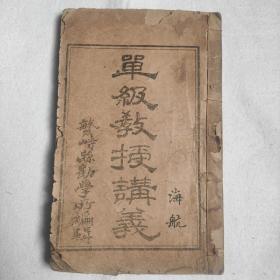 單級教授講義
海航
繁峙縣勸學所